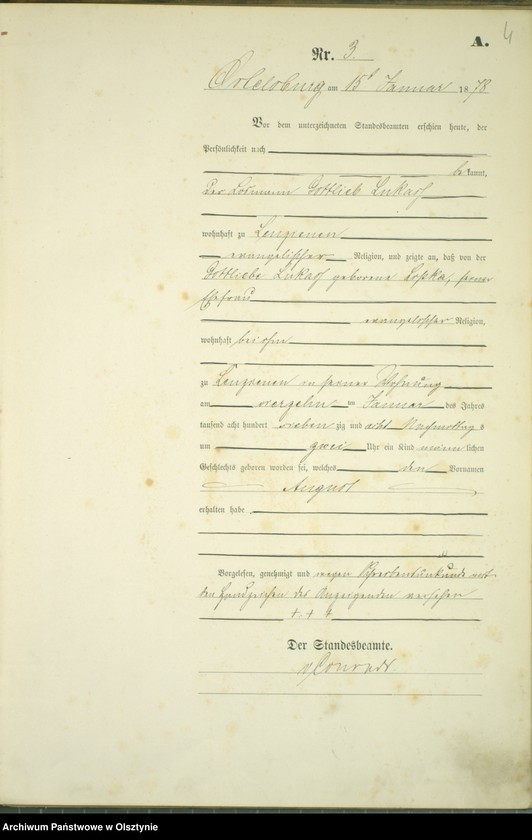 A.
4
Nr. 3.
Ortelsburg am 15t Januar 1878
Vor dem unterzeichneten Standesbeamten erschien heute, der
Persönlichkeit nach
bekannt,
Der Losmann Gottlieb Lukas
wohnhaft zu
evangelischer Religion, und zeigte an, daß von der
Gottliebe Lukas geborene seiner
Ehefrau
evangelischer Religion,
wohnhaft bei ihm
zu in seiner Wohnung
am vierzehn ten Januar des Jahres
tausend acht hundert sieben zig und acht Nachmittags
um zwei Uhr ein Kind männlichen
Geschlechts geboren worden sei, welches den Vornamen
August
erhalten habe
Vorgelesen, genehmigt und wegen Schreibensunkunde mit
den Handzeichen des Anzeigenden versehen
+ + +
Der Standesbeamte.
v Conradt
Archiwum Państwowe w Olsztynie